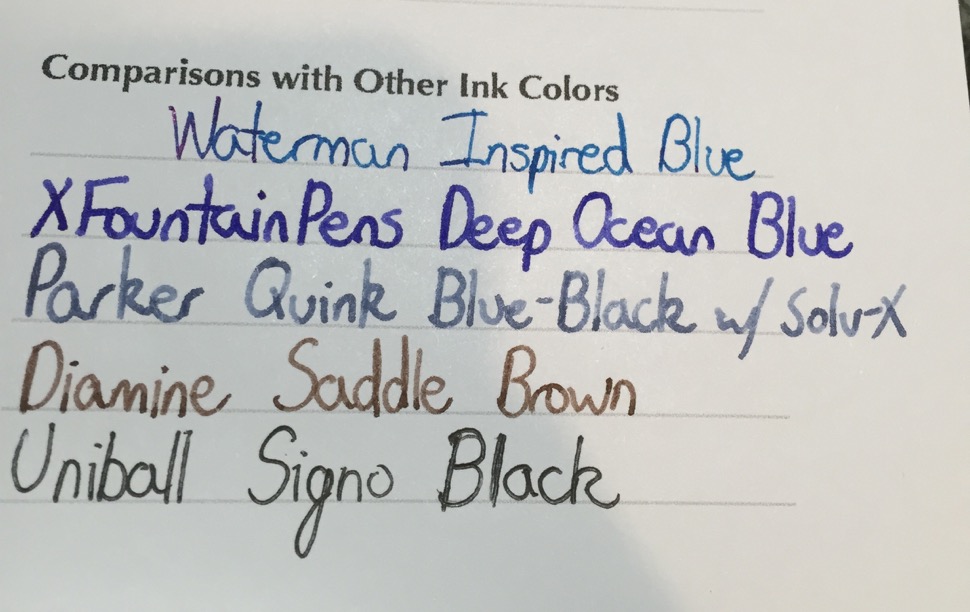 Comparisons with Other Ink Colors
Waterman Inspired Blue
XFountainPens Deep Ocean Blue
Parker Quink Blue-Black w/ Solv-X
Diamine Saddle Brown
Uniball Signo Black